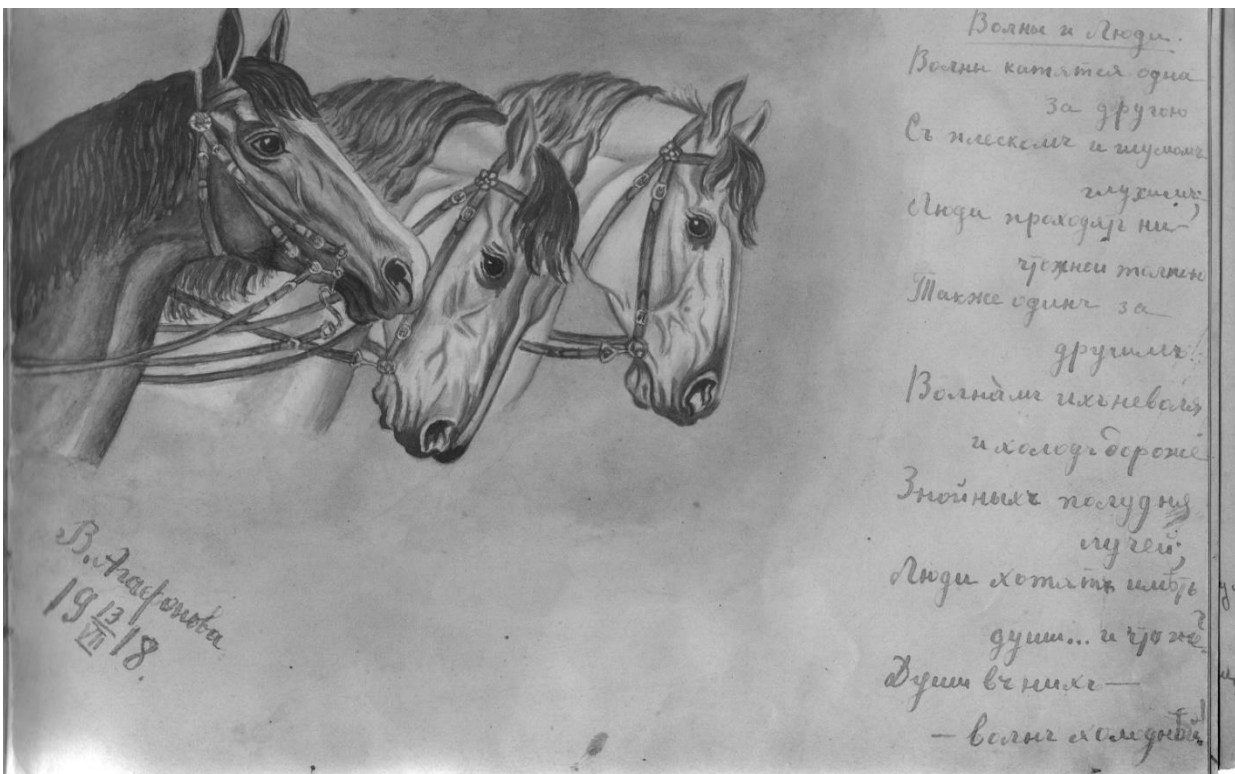 Волны и Люди.
Волны катятся одна
за другою
Съ плескомъ и шумомъ
глухимъ;
Люди проходятъ ни-
чтожной толпою
Также одинъ за
другимъ!
Волнамъ ихъ неволя
и холодъ дороже
Знойныхъ полудня
лучей;
Люди хотятъ имѣть
души... и что же?
Души въ нихъ —
— волнъ холоднѣй!
В. Агафонова
19 13/VII 18.